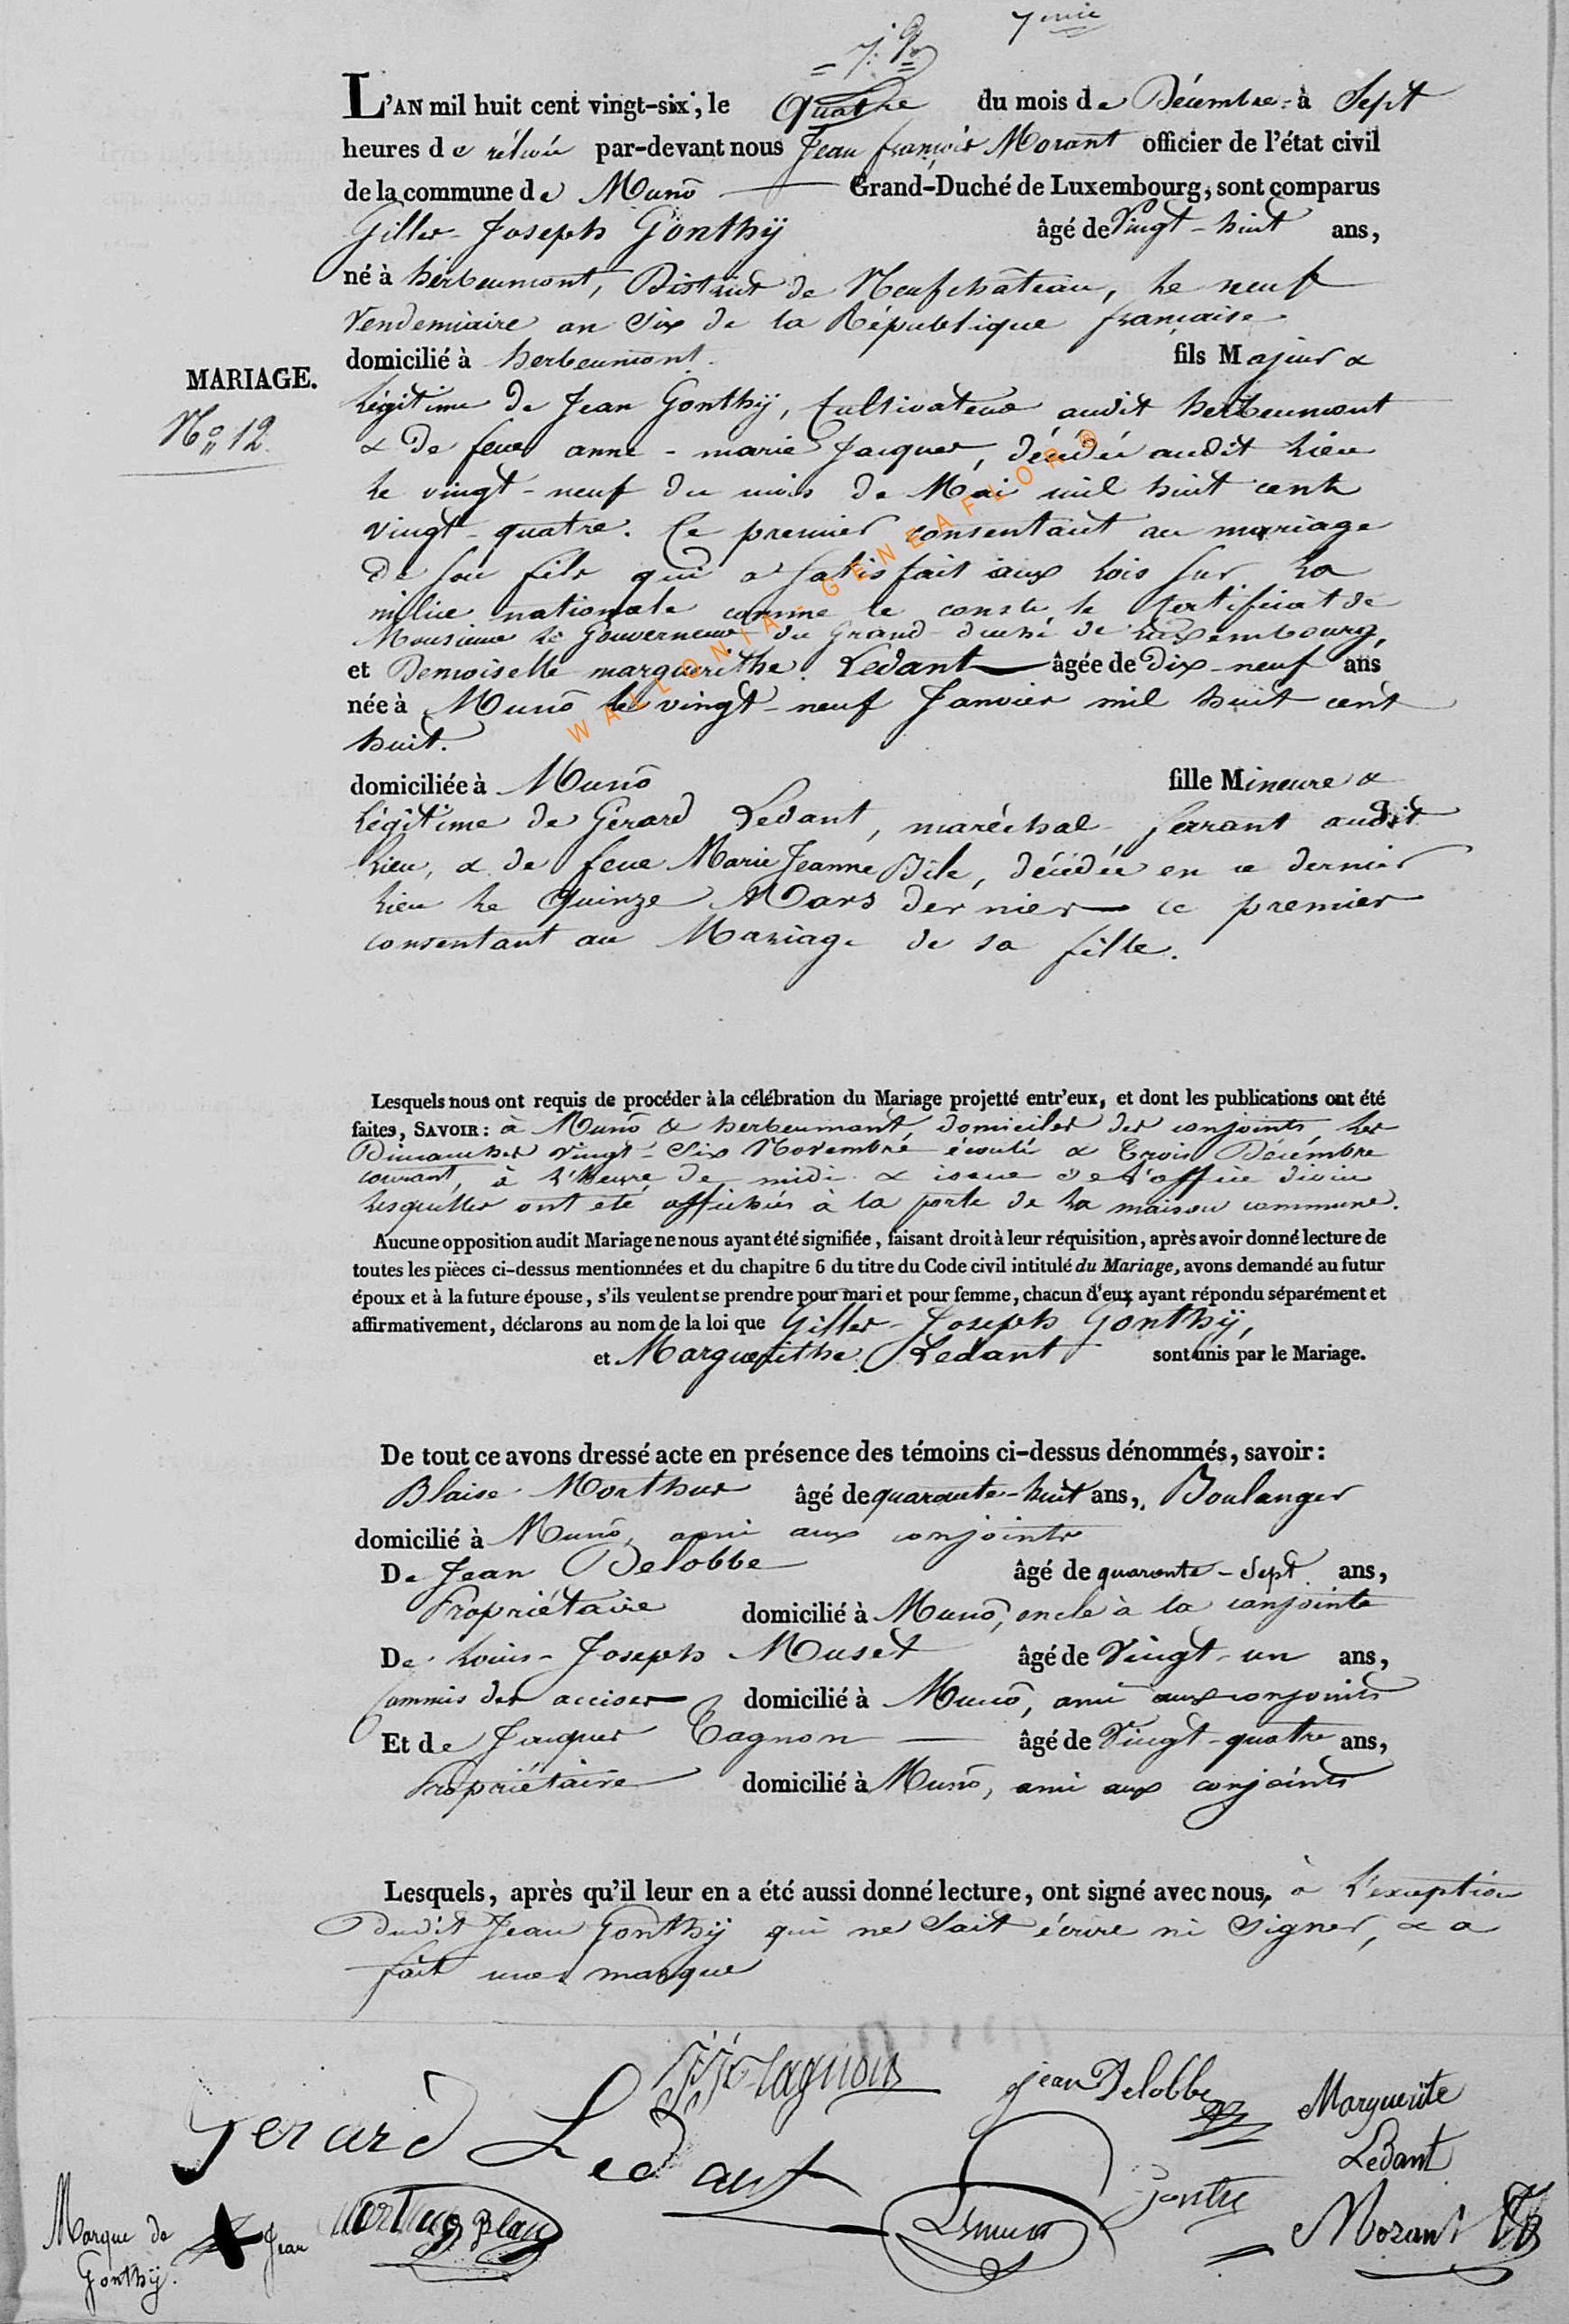 L'AN mil huit cent vingt-six, le Quatre du mois de Décembre à Sept
heures de rélevée par-devant nous Jean françois Morant officier de l'état civil
de la commune de Muno Grand-Duché de Luxembourg, sont comparus
Gilles-Joseph Gonthÿ âgé de Vingt-huit ans,
né à herbeumont, District de Neufchâteau, le neuf
Vendemiaire an Six de la République française
domicilié à herbeumont. fils Majeur &
MARIAGE.
Légitime de Jean Gonthÿ, Cultivateur audit herbeumont
No 12.
& de feue anne-marie Jacques, décédée audit Lieu
le vingt-neuf du mois de Mai mil huit cent
vingt-quatre. Ce premier consentant au mariage
de son fils qui a satisfait aux lois sur la
milice nationale comme le conste le Certificat de
Monsieur le Gouverneur du Grand-duché de Luxembourg,
et Demoiselle marguerithe Ledant âgée de Dix-neuf ans
née à Muno le vingt-neuf Janvier mil huit cent
huit.
domiciliée à Muno fille Mineure &
Légitime de Gérard Ledant, maréchal ferrant audit
Lieu, & de feue Marie Jeanne Bile, décédée en ce dernier
Lieu le Quinze Mars dernier ce premier
consentant au Mariage de sa fille.
Lesquels nous ont requis de procéder à la célébration du Mariage projetté entr'eux, et dont les publications ont été
faites, SAVOIR: à Muno & herbeumont, domiciles des conjoints, les
Dimanches vingt-Six Novembre écoulé & Trois Décembre
courant, à l'heure de midi & issue de l'office divin
lesquelles ont été affichées à la porte de la maison commune.
Aucune opposition audit Mariage ne nous ayant été signifiée, faisant droit à leur réquisition, après avoir donné lecture de
toutes les pièces ci-dessus mentionnées et du chapitre 6 du titre du Code civil intitulé du Mariage, avons demandé au futur
époux et à la future épouse, s'ils veulent se prendre pour mari et pour femme, chacun d'eux ayant répondu séparément et
affirmativement, déclarons au nom de la loi que Gilles-Joseph Gonthÿ,
et Marguerithe Ledant sont unis par le Mariage.
De tout ce avons dressé acte en présence des témoins ci-dessus dénommés, savoir:
Blaise Morthus âgé de quarante-huit ans, Boulanger
domicilié à Muno, ami aux conjoints
De Jean Delobbe âgé de quarante-Sept ans,
Propriétaire domicilié à Muno, oncle à la conjointe
De Louis-Joseph Muset âgé de Vingt-un ans,
Commis des accises domicilié à Muno, ami aux conjoints
Et de Jacques Tagnon âgé de Vingt-quatre ans,
Propriétaire domicilié à Muno, ami aux conjoints
Lesquels, après qu'il leur en a été aussi donné lecture, ont signé avec nous, à l'exception
dudit Jean Gonthÿ qui ne Sait écrire ni Signer, & a
fait une marque
Tagnon
jean Delobbe
Marguerite
Ledant
Gerard Ledant
Gonthy
Morant
Marque de Jean
Gonthÿ.
WALLONIA-GENEAFLOR®